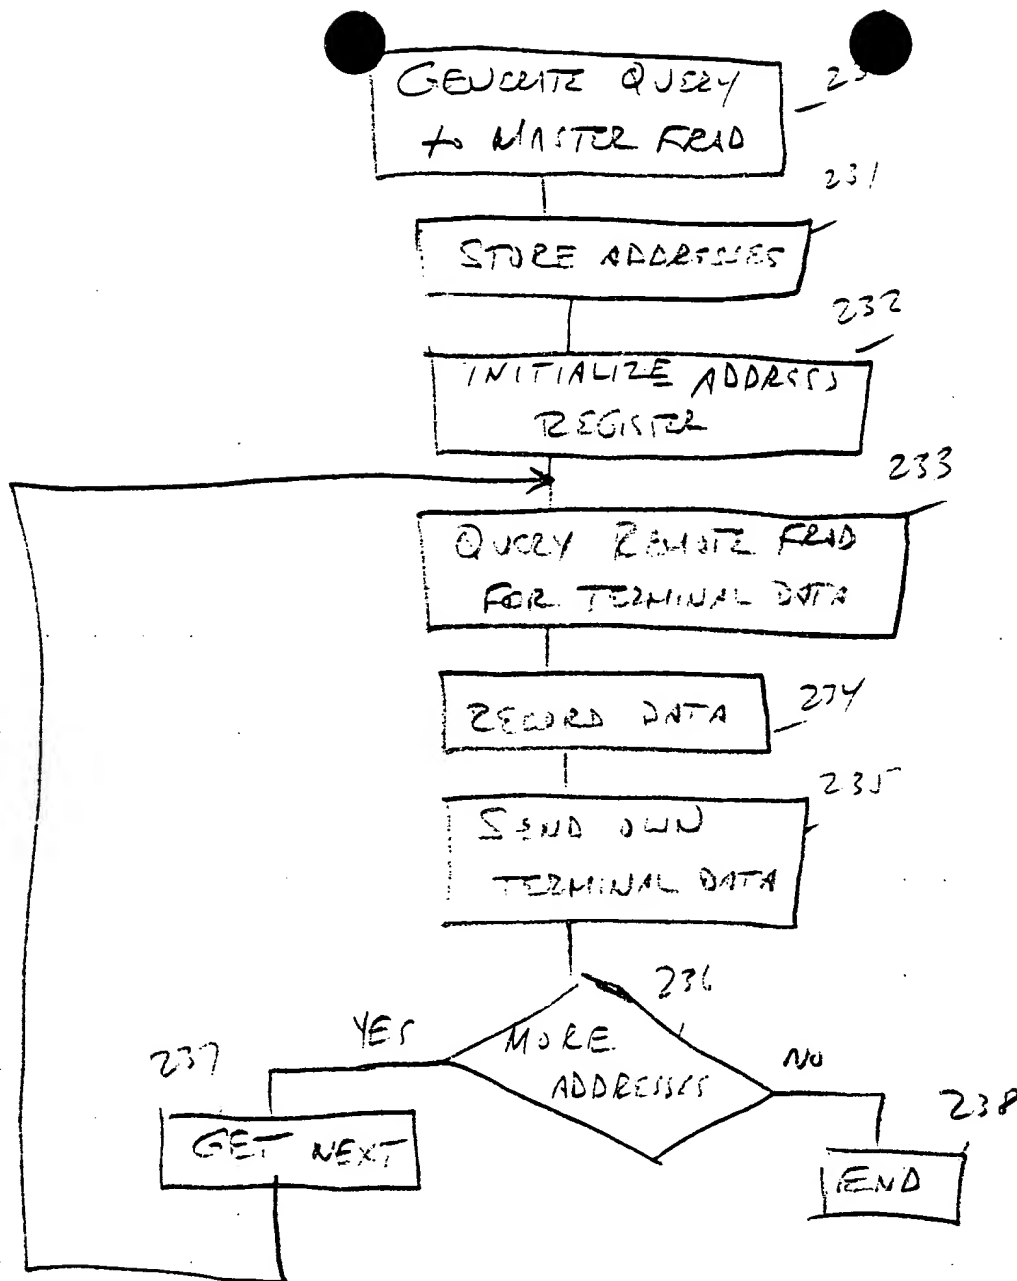 GENERATE QUERY
to MASTER FRAD
231
STORE ADDRESSES
232
INITIALIZE ADDRESS
REGISTER
233
QUERY REMOTE FRAD
FOR TERMINAL DATA
RECORD DATA
234
235
SEND OWN
TERMINAL DATA
236
YES
MORE
ADDRESSES
NO
237
GET NEXT
238
END